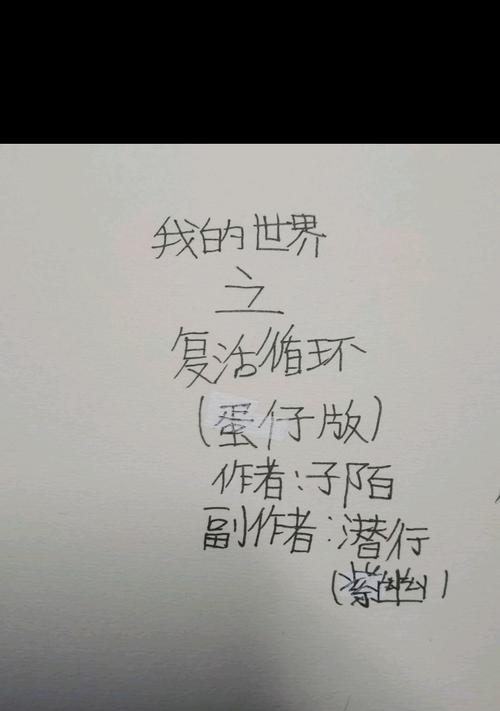 我的世界
之
复活循环
(蛋仔版)
作者:子陌
副作者:潜行
(幽)